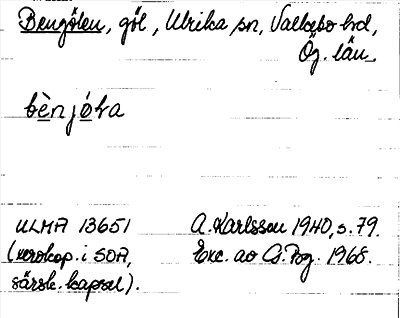 Bengölen, göl, Ulrika sn, Valkebo hd,
Ög. län
bènjó̱ḷa
ULMA 13651
(verskap. i SOA,
särsk. kapsel).
A. Karlsson 1940, s. 79.
Exc. av G. Bg. 1968.